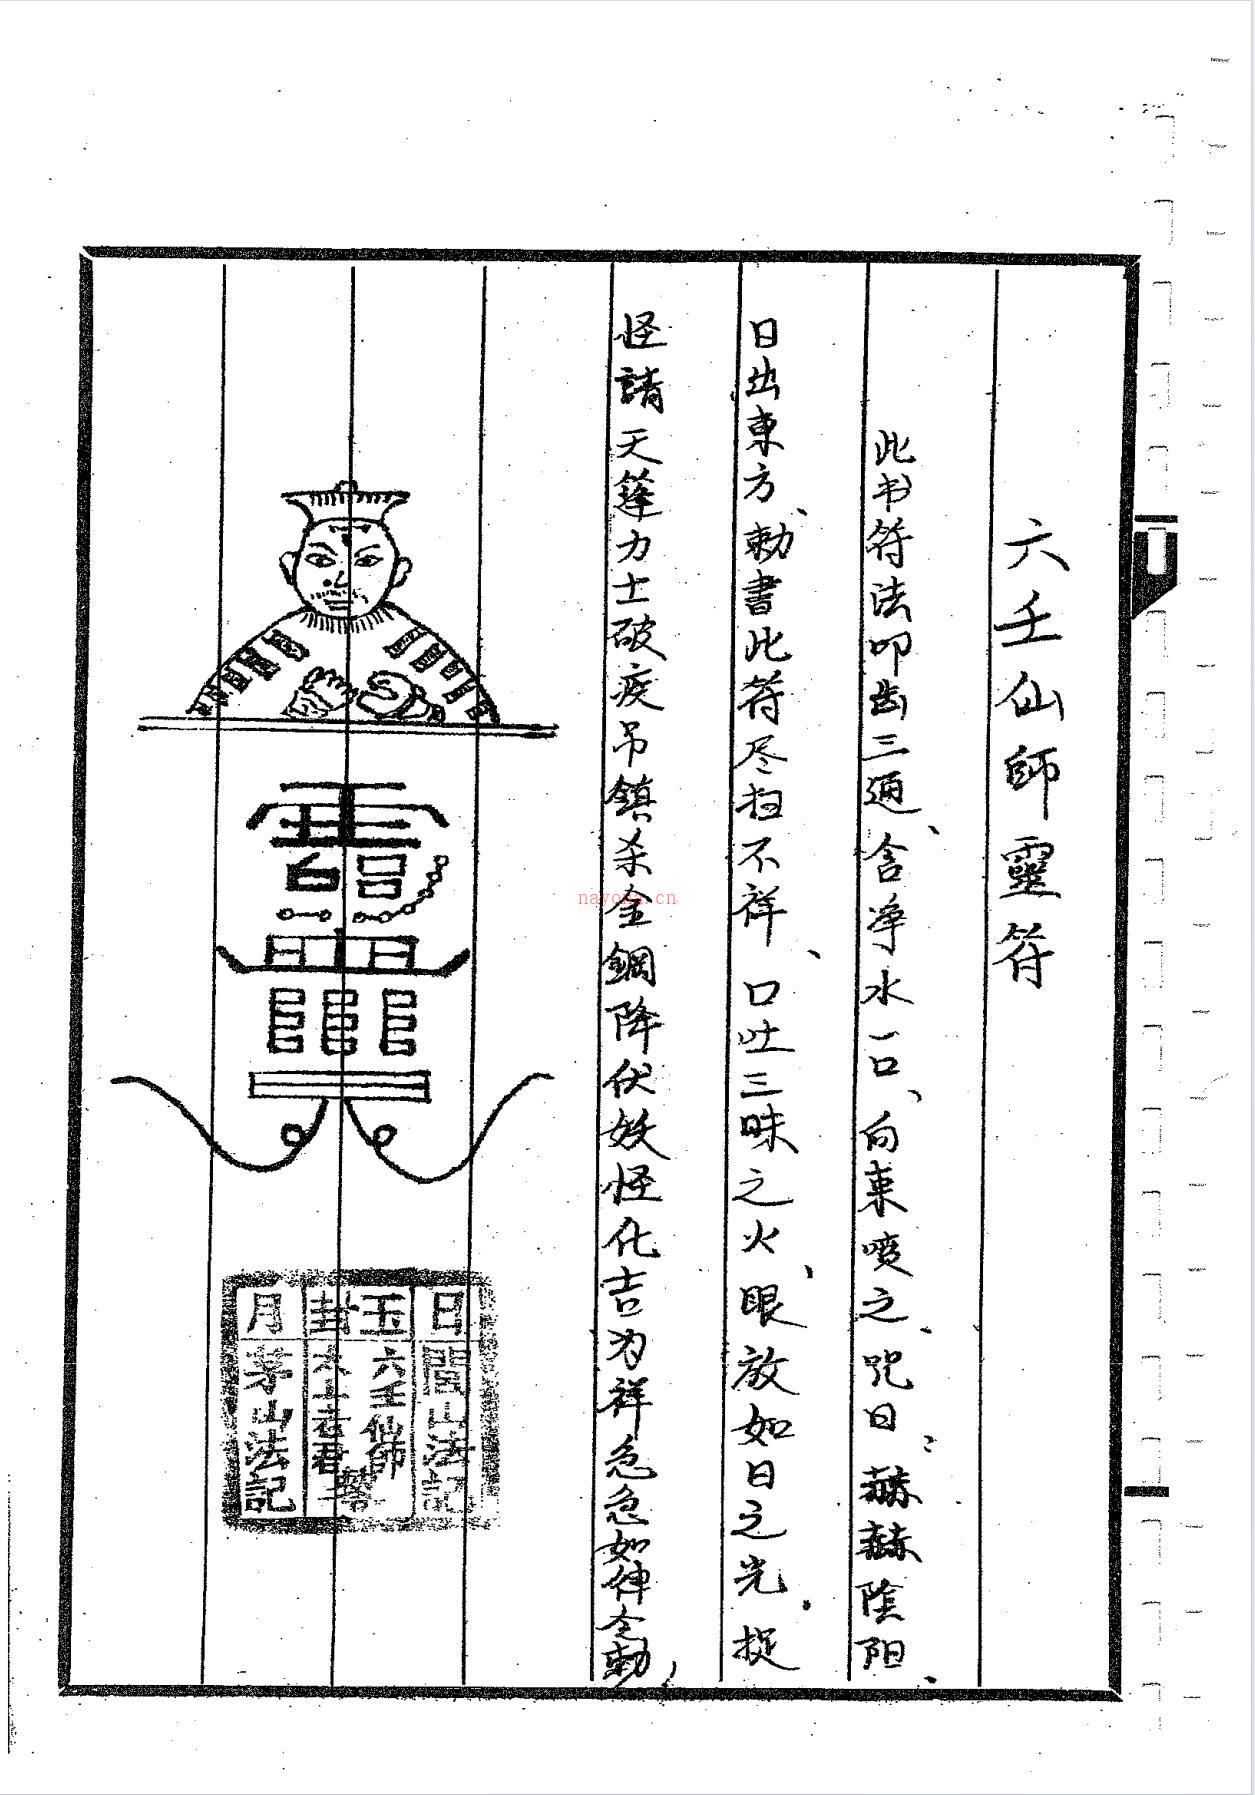 六壬仙師靈符
此书符法叩齿三通、含净水一口、向東喷之、咒曰：赫赫陰阳、
日出東方、勅書此符尽扫不祥、口吐三昧之火、眼放如日之光、捉
怪請天篷力士破疾吊鎮杀金鋼降伏妖怪化吉为祥急急如律令勅
日 閭山法記
玉 六壬仙師
封
月 茅山法記
nayona.cn